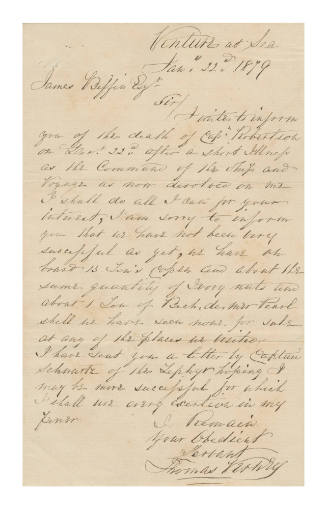 Venture at Sea
Jany 22d 1879
James Biffin Esqr
Sir/
I write to inform
you of the death of Capt Robertson
on 22d after a short Illness
as the Command of the Ship and
Voyage as now devolved on me
I shall do all I can for your
interest, I am sorry to inform
you that we have not been very
successful as yet, we have on
board 13 Ton's Copra and about the
same quantity of Ivory nuts and
about 1 Ton of Bech, de, Mer Pearl
shell we have seen none for sale
at any of the places we visited
I have sent you a letter by Captain
Schwartz of the Zephyr hoping I
may be more successful for which
I shall use every exertion in my
power
I Remain
Your Obedient
Servant
Thomas